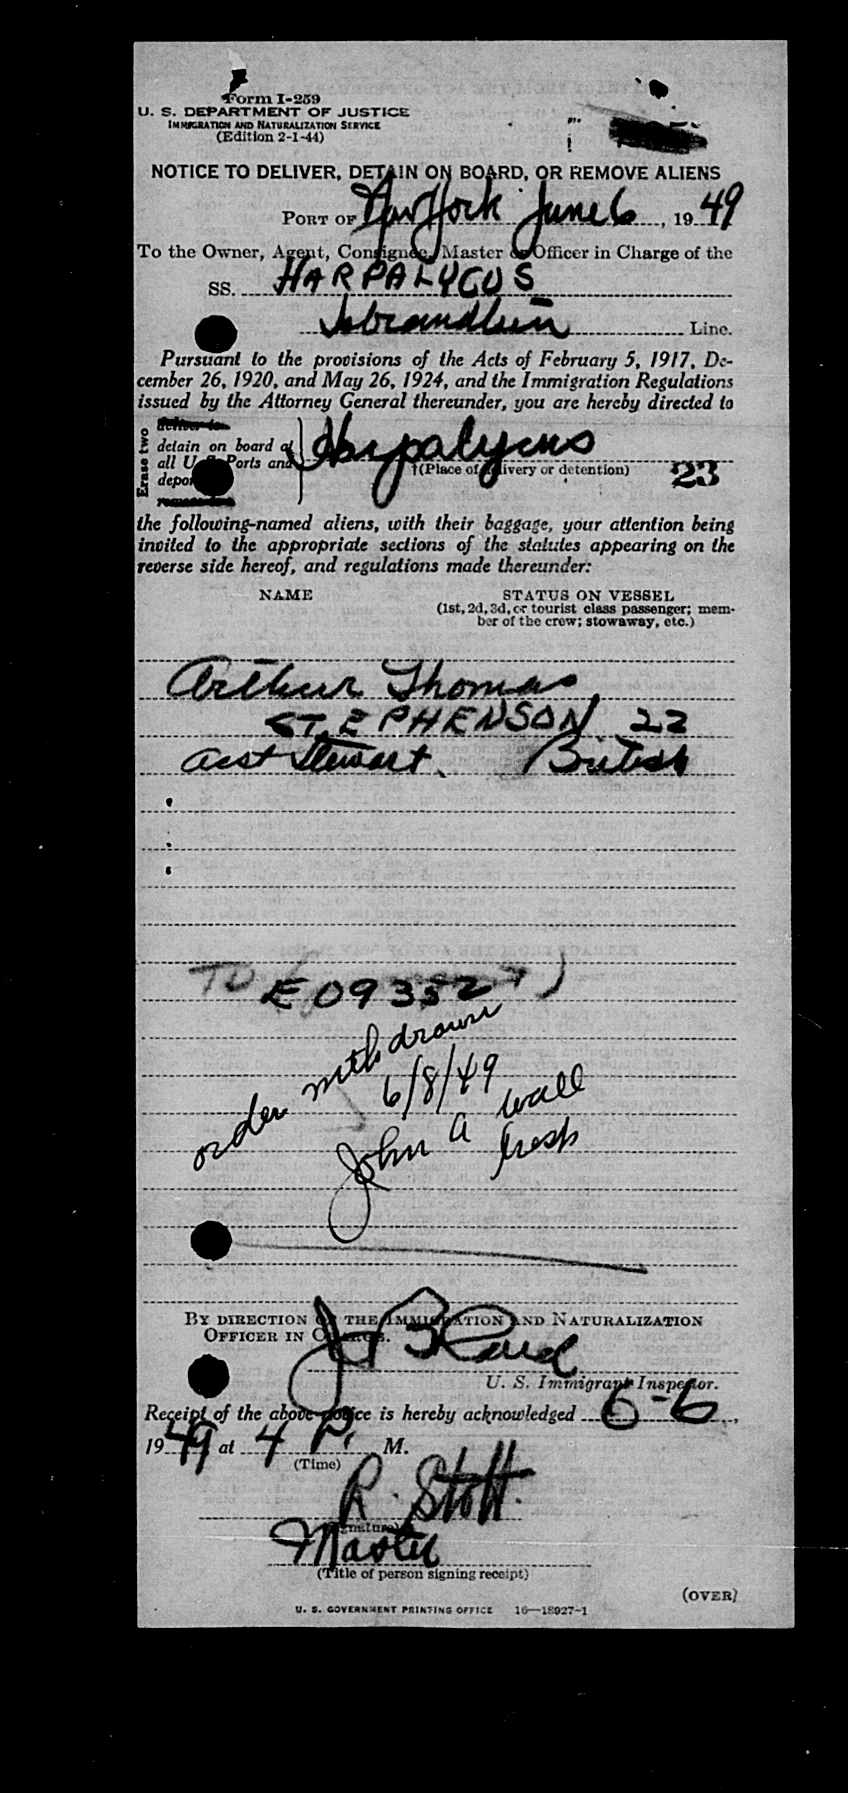 Form I-259
U. S. DEPARTMENT OF JUSTICE
IMMIGRATION AND NATURALIZATION SERVICE
(Edition 2-1-44)
NOTICE TO DELIVER, DETAIN ON BOARD, OR REMOVE ALIENS
PORT OF New York June 6, 1949
To the Owner, Agent, Consignee, Master or Officer in Charge of the
SS. HARPALYCUS
Isbrandtsen Line.
Pursuant to the provisions of the Acts of February 5, 1917, De-
cember 26, 1920, and May 26, 1924, and the Immigration Regulations
issued by the Attorney General thereunder, you are hereby directed to
Erase two
deliver to
detain on board at
all U. S. Ports and
depor
Harpalycus
†(Place of delivery or detention) 23
the following-named aliens, with their baggage, your attention being
invited to the appropriate sections of the statutes appearing on the
reverse side hereof, and regulations made thereunder:
NAME STATUS ON VESSEL
(1st, 2d, 3d, or tourist class passenger; mem-
ber of the crew; stowaway, etc.)
Arthur Thomas
STEPHENSON. 22
Asst Stewart. British
TO E09352
order withdrawn
6/8/49
John A Wall
BY DIRECTION OF THE IMMIGRATION AND NATURALIZATION
OFFICER IN CHARGE.
U. S. Immigrant Inspector.
Receipt of the above notice is hereby acknowledged 6-6,
1949 at 4 P. M.
(Time)
R. Stott.
(Signature)
Master
(Title of person signing receipt)
(OVER)
U. S. GOVERNMENT PRINTING OFFICE 16—18027-1